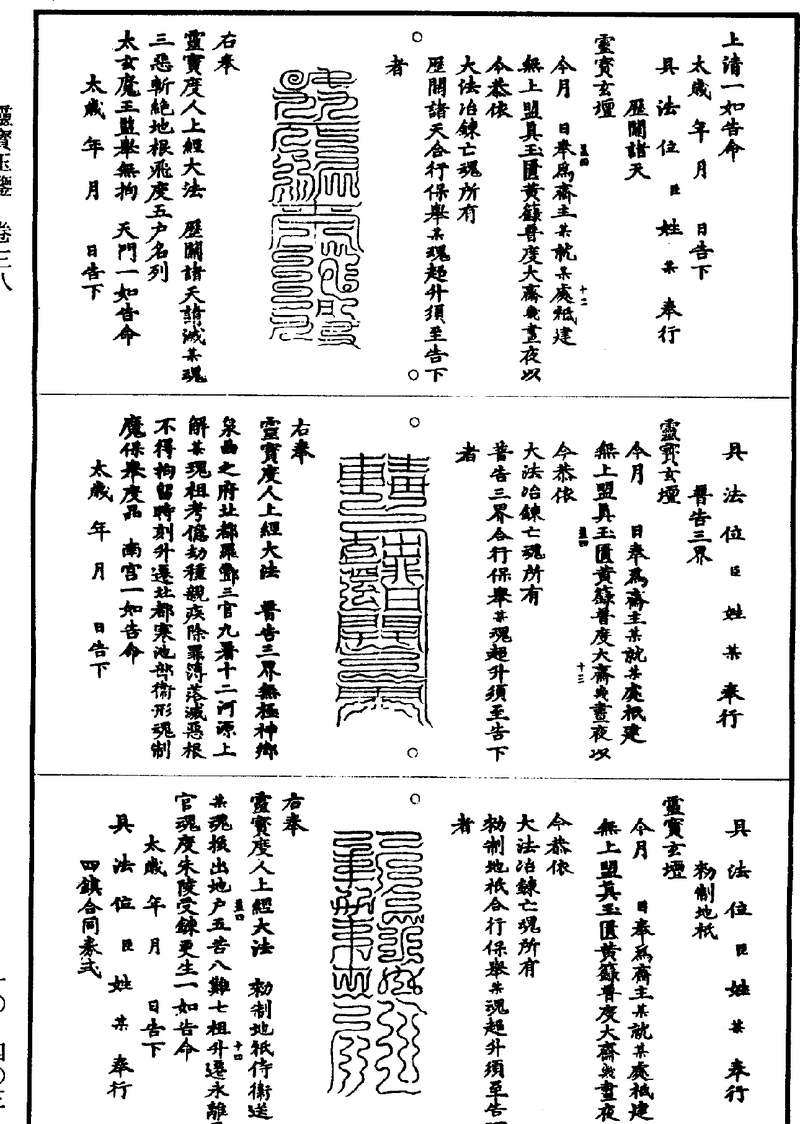 上清一如告命
太歲 年 月 日告下
具 法 位 臣 姓 某 奉行
歷關諸天
靈寶玄壇
今月 日奉爲齋主某就某處祗建
無上盟真玉匱黃籙普度大齋幾晝夜以
今恭依
大法冶鍊亡魂所有
歷關諸天合行保舉某魂超升須至告下
者
右奉
靈寶度人上經大法 歷關諸天請滅某魂
三惡斬絕地根飛度五户名列
太玄魔王監舉無拘 天門一如告命
太歲 年 月 日告下
具 法 位 臣 姓 某 奉行
普告三界
靈寶玄壇
今月 日奉爲齋主某就某處祗建
無上盟真玉匱黃籙普度大齋幾晝夜以
今恭依
大法冶鍊亡魂所有
普告三界合行保舉某魂超升須至告下
者
右奉
靈寶度人上經大法 普告三界無極神鄉
泉曲之府北都羅酆三官九署十二河源上
解某魂祖考億劫種親疾除罪簿落滅惡根
不得拘留時刻升遷北都寒池部衛形魂制
魔保舉度品 南宫一如告命
太歲 年 月 日告下
具 法 位 臣 姓 某 奉行
勑制地祇
靈寶玄壇
今月 日奉爲齋主某就某處祗建
無上盟真玉匱黃籙普度大齋幾晝夜
今恭依
大法冶鍊亡魂所有
勑制地祇合行保舉某魂超升須至告
者
右奉
靈寶度人上經大法 勑制地祇侍衛送
某魂拔出地户五苦八難七祖升遷永離
官魂度朱陵受鍊更生一如告命
太歲 年 月 日告下
具 法 位 臣 姓 某 奉行
四鎮合同券式
靈寶玉鑒 卷三八
一〇 四〇三